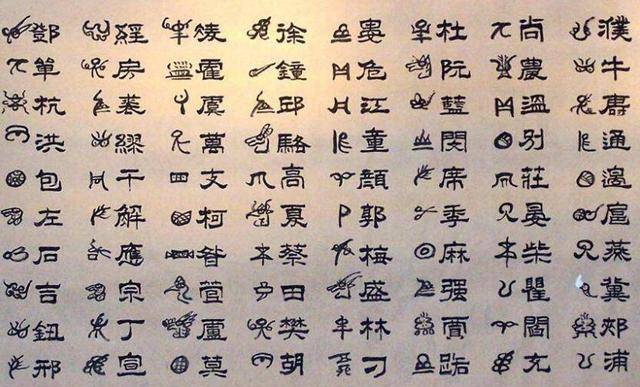 濮牛壽通邊扈燕冀郟浦
尚農溫別莊晏柴瞿閻充
杜阮藍閔席季麻强賈路
婁危江童顏郭梅盛林刁
徐鐘邱駱高夏蔡田樊胡
凌霍虞萬支柯昝管盧莫
經房裘繆干解應宗丁宣
鄧單杭洪包左石吉鈕邢